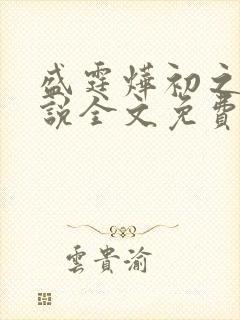 盛霆燁初之
說全文免費
雲貴渝